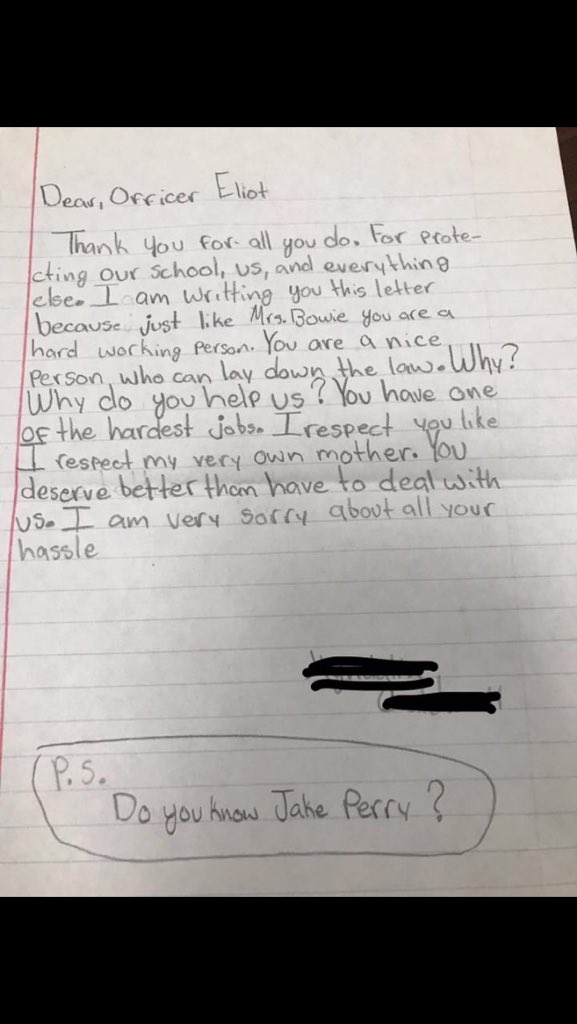 Dear, Officer Eliot
Thank you for all you do. For prote-
cting our school, us, and everything
else. I am writting you this letter
because just like Mrs. Bowie you are a
hard working person. You are a nice
person, who can lay down the law. Why?
Why do you help us? You have one
of the hardest jobs. I respect you like
I respect my very own mother. You
deserve better than have to deal with
us. I am very sorry about all your
hassle
P.S.
Do you know Jake Perry?